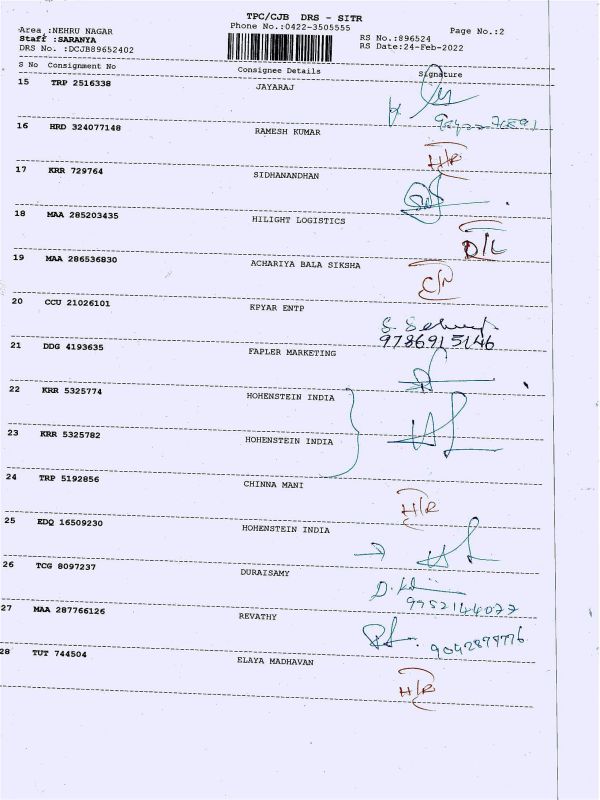 TPC/CJB DRS - SITR
Area :NEHRU NAGAR Phone No.:0422-3505555 Page No.:2
Staff :SARANYA RS No.:896524
DRS No. :DCJB89652402 RS Date:24-Feb-2022
S No Consignment No Consignee Details Signature
15 TRP 2516338 JAYARAJ
16 HRD 324077148 RAMESH KUMAR H/R
17 KRR 729764 SIDHANANDHAN
18 MAA 285203435 HILIGHT LOGISTICS D/L
19 MAA 286536830 ACHARIYA BALA SIKSHA C/N
20 CCU 21026101 KPYAR ENTP
9786915146
21 DDG 4193635 FAPLER MARKETING
22 KRR 5325774 HOHENSTEIN INDIA
23 KRR 5325782 HOHENSTEIN INDIA
24 TRP 5192856 CHINNA MANI H/R
25 EDQ 16509230 HOHENSTEIN INDIA
26 TCG 8097237 DURAISAMY
9952144077
27 MAA 287766126 REVATHY 9042877776
28 TUT 744504 ELAYA MADHAVAN H/R